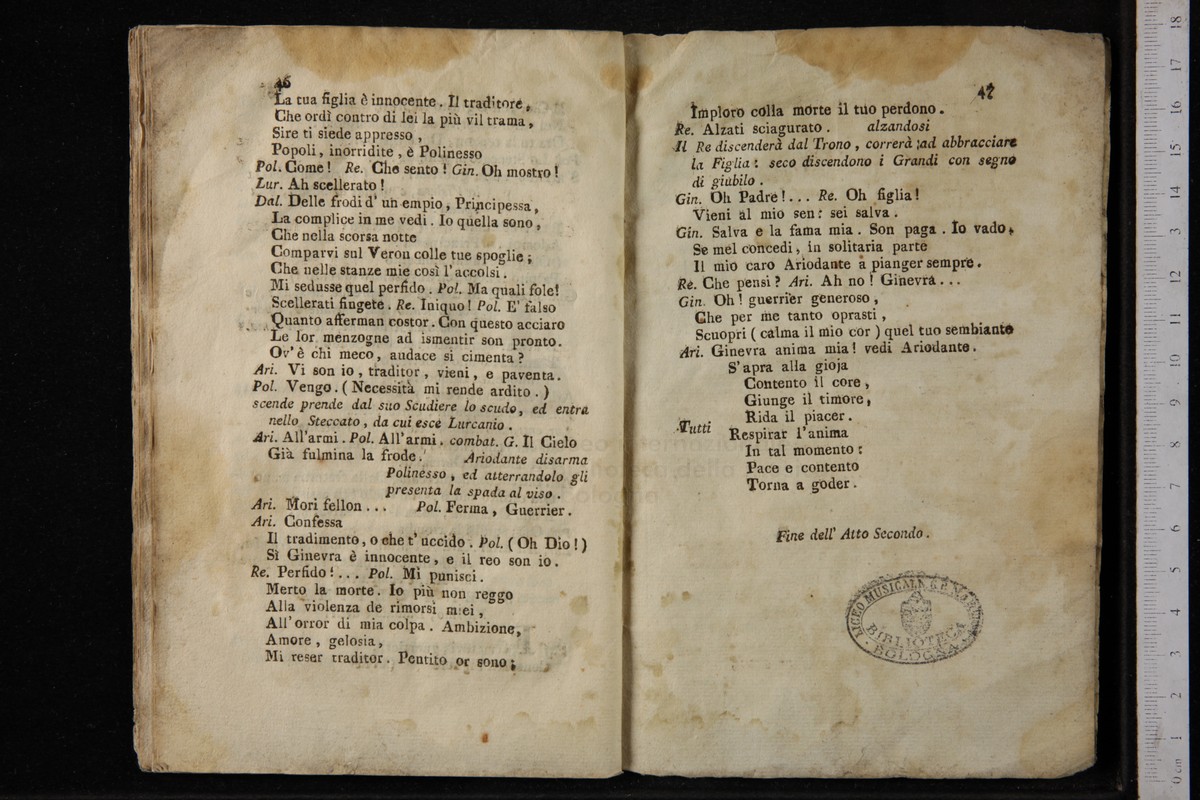 46
La tua figlia è innocente. Il traditore,
Che ordì contro di lei la più vil trama,
Sire ti siede appresso,
Popoli, inorridite, è Polinesso
Pol. Come! Re. Che sento! Gin. Oh mostro!
Lur. Ah scellerato!
Dal. Delle frodi d' un empio, Principessa,
La complice in me vedi. Io quella sono,
Che nella scorsa notte
Comparvi sul Veron colle tue spoglie;
Che nelle stanze mie così l'accolsi.
Mi sedusse quel perfido. Pol. Ma quali fole!
Scellerati fingete. Re. Iniquo! Pol. E' falso
Quanto afferman costor. Con questo acciaro
Le lor menzogne ad ismentir son pronto.
Ov'è chi meco, audace si cimenta?
Ari. Vi son io, traditor, vieni, e paventa.
Pol. Vengo. (Necessità mi rende ardito.)
scende prende dal suo Scudiere lo scudo, ed entra
nello Steccato, da cui esce Lurcanio.
Ari. All'armi. Pol. All'armi. combat. G. Il Cielo
Già fulmina la frode. Ariodante disarma
Polinesso, ed atterrandolo gli
presenta la spada al viso.
Ari. Mori fellon... Pol. Ferma, Guerrier.
Ari. Confessa
Il tradimento, o che t' uccido. Pol. (Oh Dio!)
Sì Ginevra è innocente, e il reo son io.
Re. Perfido!... Pol. Mi punisci.
Merto la morte. Io più non reggo
Alla violenza de rimorsi miei,
All'orror di mia colpa. Ambizione,
Amore, gelosia,
Mi reser traditor. Pentito or sono;
47
Imploro colla morte il tuo perdono.
Re. Alzati sciagurato. alzandosi
Il Re discenderà dal Trono, correrà ad abbracciare
la Figlia: seco discendono i Grandi con segno
di giubilo.
Gin. Oh Padre!... Re. Oh figlia!
Vieni al mio sen: sei salva.
Gin. Salva e la fama mia. Son paga. Io vado,
Se mel concedi, in solitaria parte
Il mio caro Ariodante a pianger sempre.
Re. Che pensi? Ari. Ah no! Ginevra...
Gin. Oh! guerrier generoso,
Che per me tanto oprasti,
Scuopri (calma il mio cor) quel tuo sembiante
Ari. Ginevra anima mia! vedi Ariodante.
S'apra alla gioja
Contento il core,
Giunge il timore,
Rida il piacer.
Tutti Respirar l'anima
In tal momento:
Pace e contento
Torna a goder.
Fine dell' Atto Secondo.
LICEO MUSICALE G.B. MARTINI
BIBLIOTECA
BOLOGNA